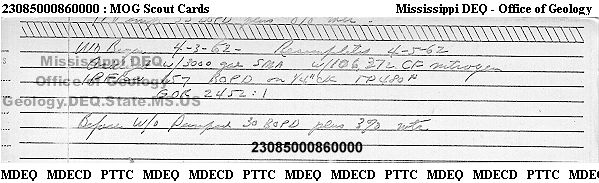 23085000860000 : MOG Scout Cards Mississippi DEQ - Office of Geology
30 BOPD plus
W/O Began 4-3-62- Recompleted 4-5-62
w/3000 gal SMA w/106,372 CF nitrogen
457 BOPD on 1/4" CK FP 480#
GOR 2452:1
Mississippi DEQ
Office of Geology
Geology.DEQ.State.MS.US
Before W/O Pumped 30 BOPD plus 3% wtr
23085000860000
MDEQ MDECD PTTC MDEQ MDECD PTTC MDEQ MDECD PTTC MDEQ MDECD PTTC MDE